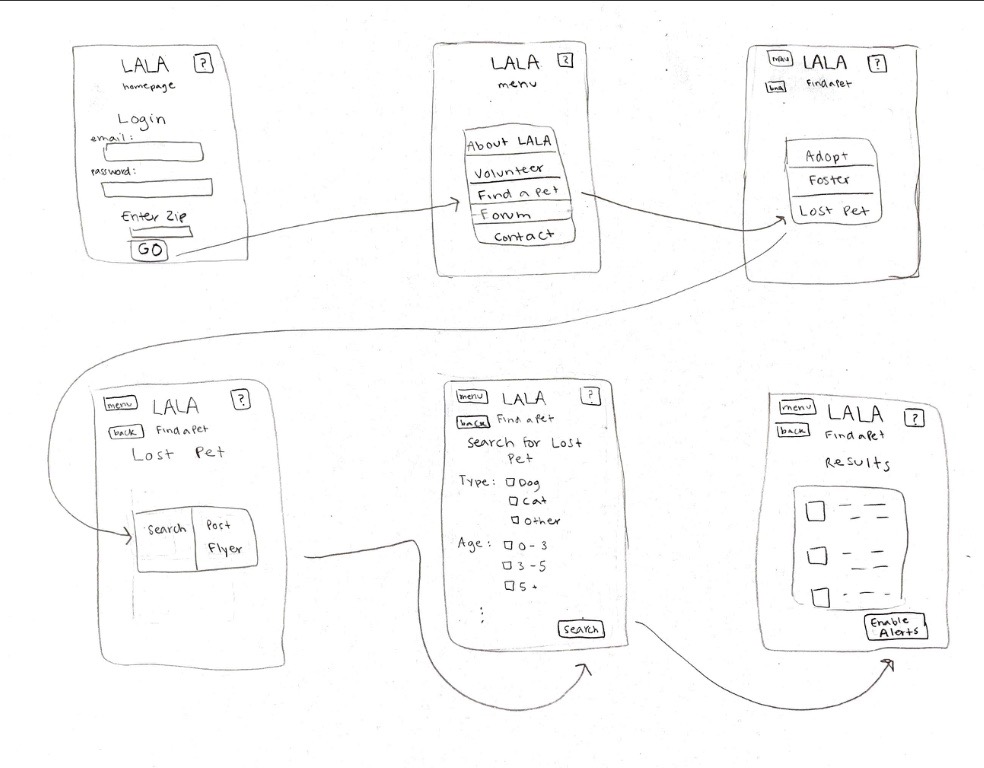 LALA ?
homepage
Login
email:
password:
Enter Zip
GO
LALA ?
menu
About LALA
Volunteer
Find a pet
Forum
Contact
menu LALA ?
back Find a Pet
Adopt
Foster
Lost Pet
menu LALA ?
back Find a Pet
Lost Pet
Search
Post
Flyer
menu LALA ?
back Find a Pet
Search for Lost
Pet
Type: Dog
Cat
Other
Age: 0-3
3-5
5+
Search
menu LALA ?
back Find a Pet
Results
Enable
Alerts